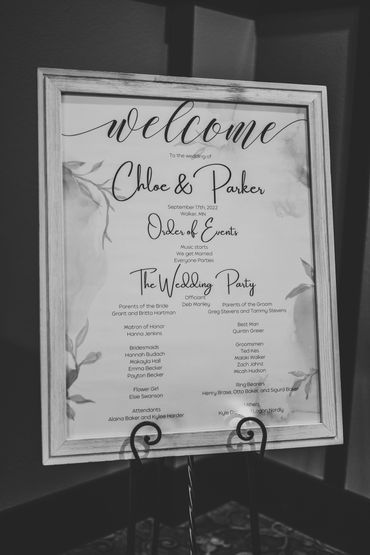 welcome
To the wedding of
Chloe & Parker
September 17th, 2022
Walker, MN
Order of Events
Music starts
We get Married
Everyone Parties
The Wedding Party
Officiant
Deb Manley
Parents of the Bride
Grant and Britta Hartman
Parents of the Groom
Greg Stevens and Tammy Stevens
Matron of Honor
Hanna Jenkins
Best Man
Quintin Greier
Bridesmaids
Hannah Budach
Makayla Hall
Emma Becker
Payton Becker
Groomsmen
Ted Kes
Malaki Walker
Zach Johnz
Micah Hudson
Flower Girl
Elsie Swanson
Ring Bearers
Henry Brose, Otto Baker, and Sigurd Baker
Attendants
Alaina Baker and Kylee Harder
Kyle
Logan Nordly